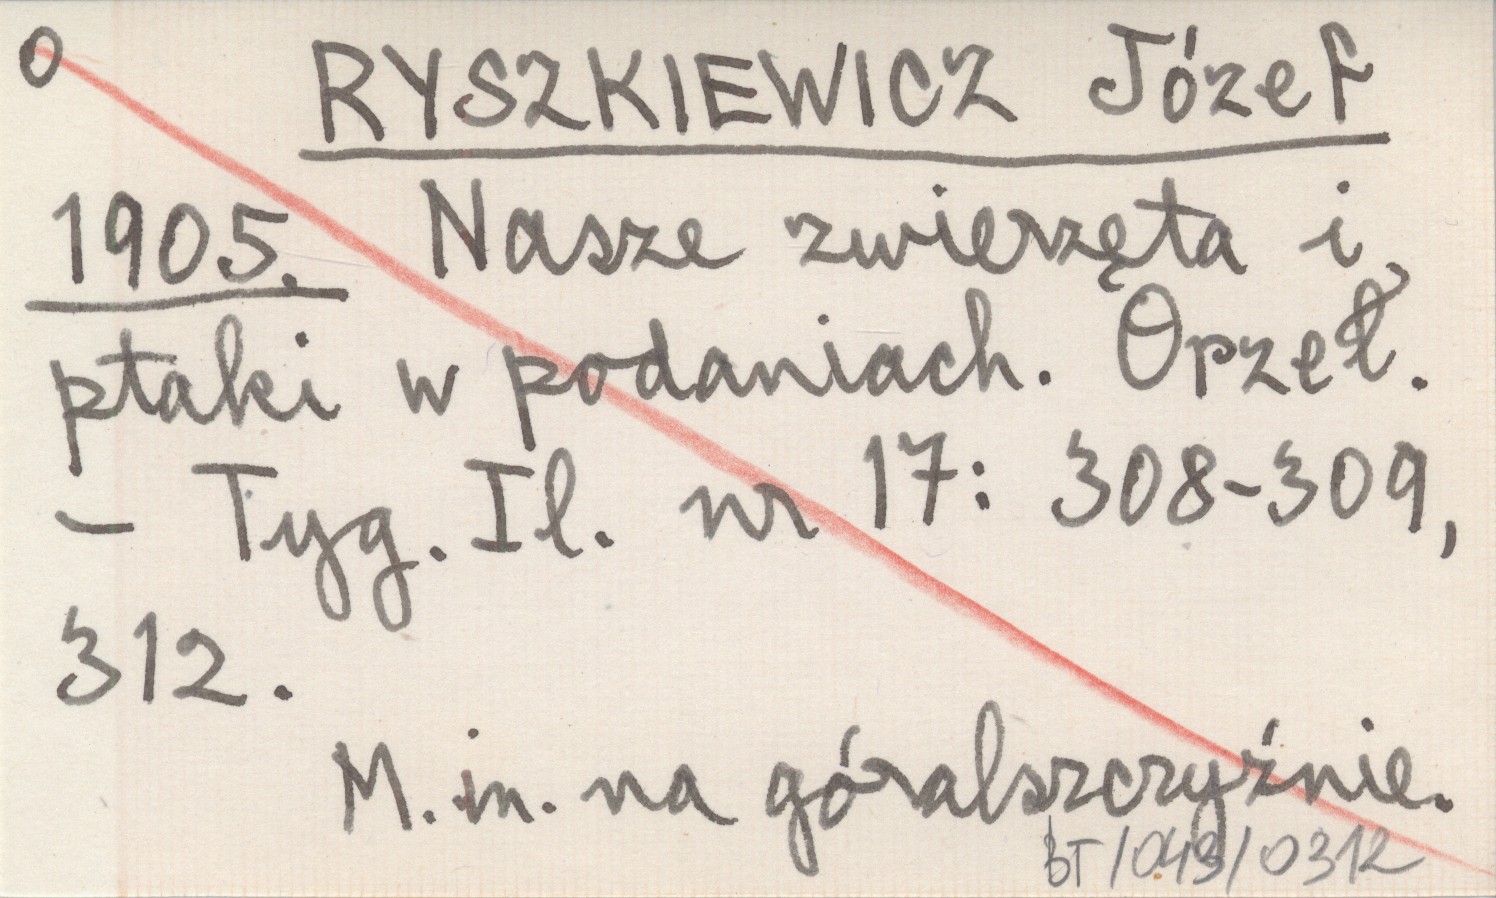 O RYSZKIEWICZ Józef
1905. Nasze zwierzęta i
ptaki w podaniach. Orzeł.
– Tyg. Il. nr 17: 308-309,
312.
M. in. na góralszczyźnie.
BT/043/0312